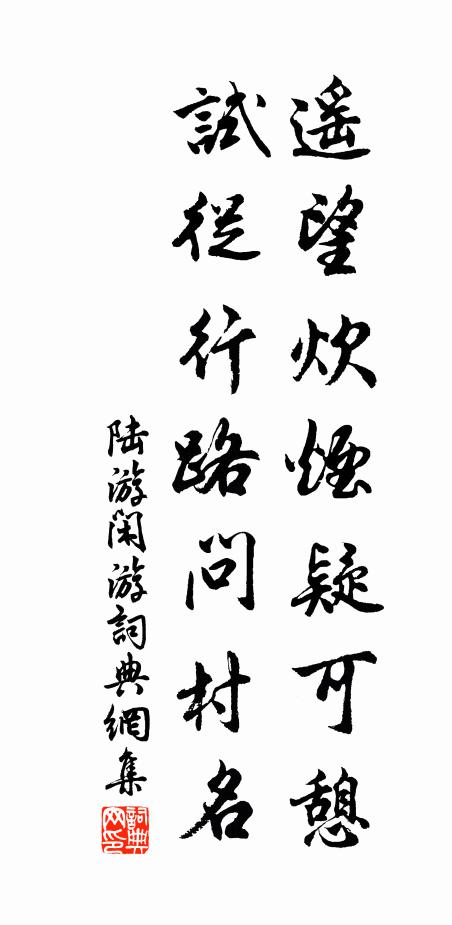 遥望炊煙疑可憩
試從行路問村名
陆游闲游詞典網集
詞典网印